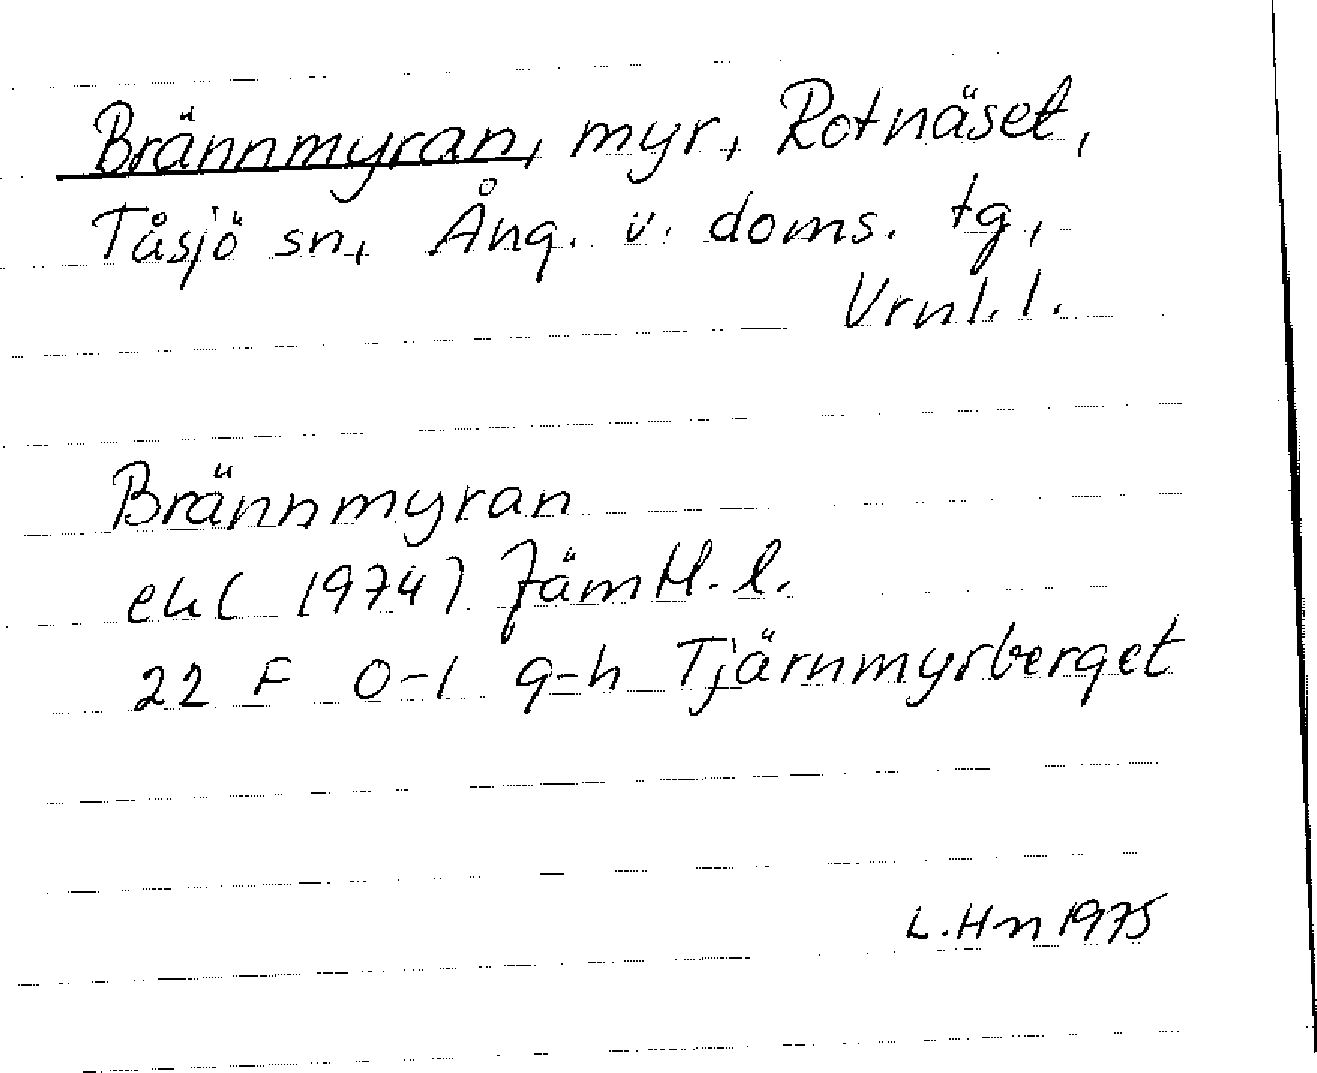 Brännmyran, myr, Rotnäset,
Tåsjö sn, Ång. v. doms. tg,
Vrnl. l.
Brännmyran
ek (1974) Jämtl. l.
22 F 0-1 g-h Tjärnmyrberget
L. Hn 1975